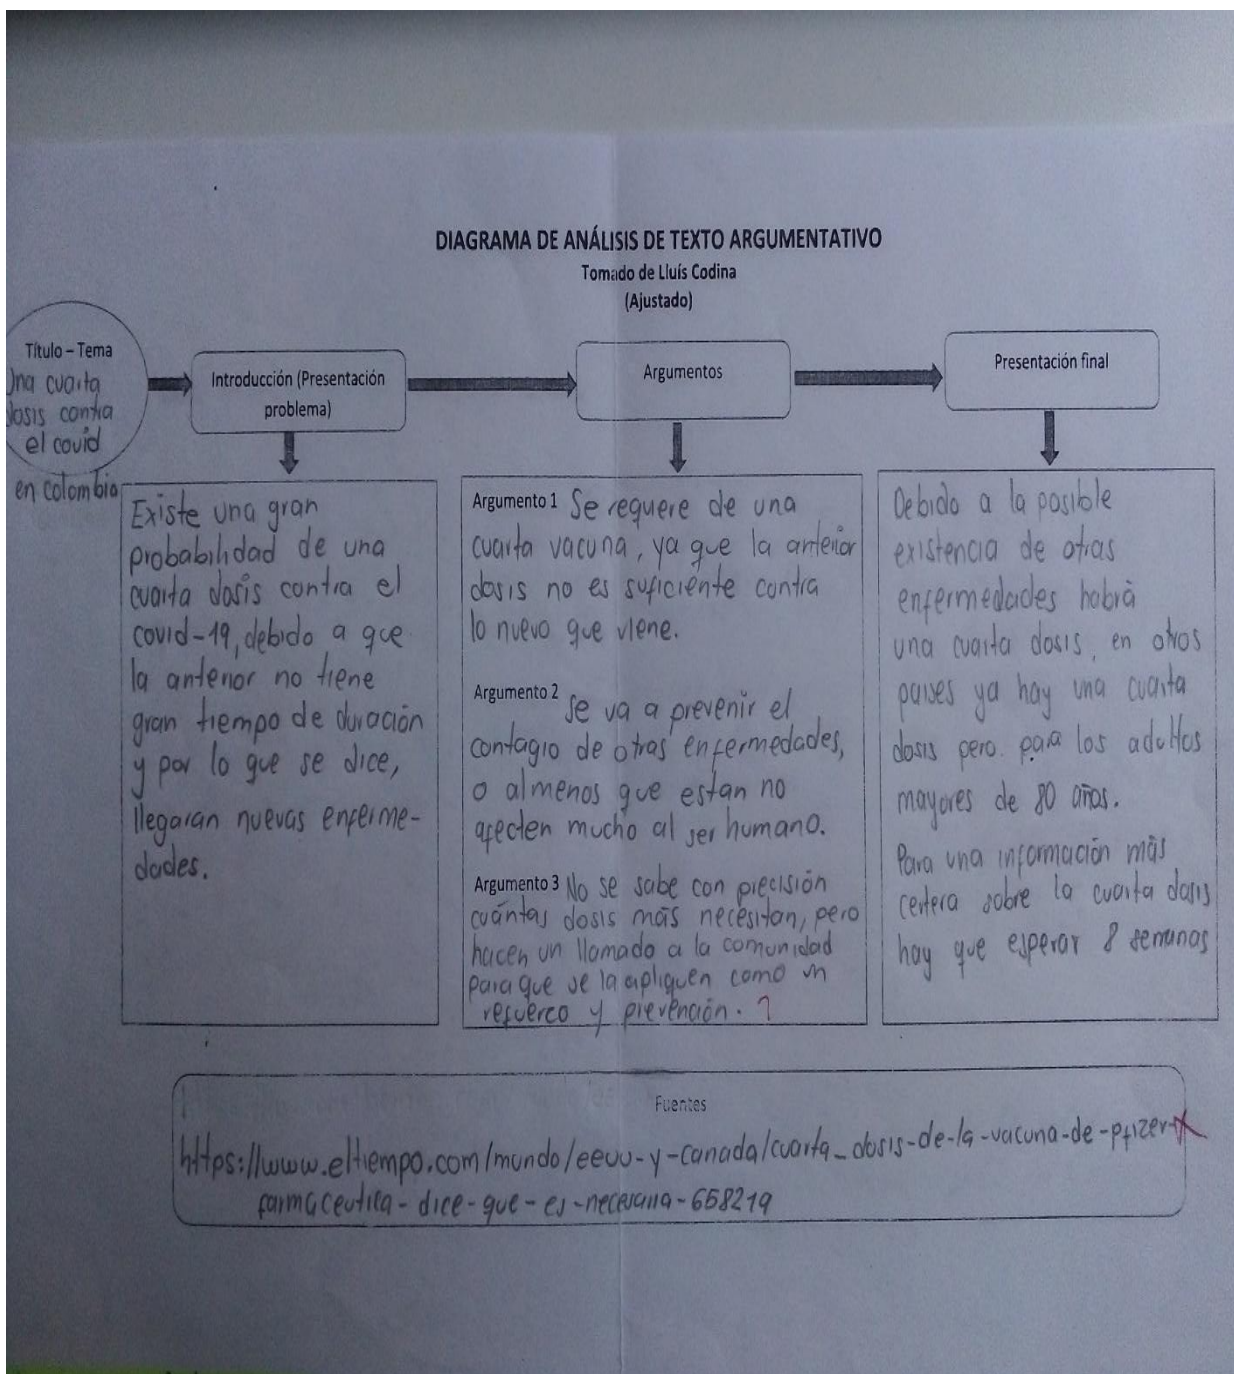 DIAGRAMA DE ANÁLISIS DE TEXTO ARGUMENTATIVO
Tomado de Lluís Codina
(Ajustado)
Título – Tema
Una cuarta
dosis contra
el covid
en colombia
Introducción (Presentación
problema)
Existe una gran
probabilidad de una
cuarta dosis contra el
covid-19, debido a que
la anterior no tiene
gran tiempo de duración
y por lo que se dice,
llegaran nuevas enferme-
dades.
Argumentos
Argumento 1 Se requere de una
cuarta vacuna, ya que la anterior
dosis no es suficiente contra
lo nuevo que viene.
Argumento 2 Se va a prevenir el
contagio de otras enfermedades,
o almenos que estan no
afecten mucho al ser humano.
Argumento 3 No se sabe con precisión
cuántas dosis más necesitan, pero
hacen un llamado a la comunidad
para que se la apliquen como un
refuerco y prevención. ?
Presentación final
Debido a la posible
existencia de otras
enfermedades habrá
una cuarta dosis, en otros
paises ya hay una cuarta
dosis pero. para los adultos
mayores de 80 años.
Para una información más
certera sobre la cuarta dosis
hay que esperar 8 semanas
Fuentes
https://www.eltiempo.com/mundo/eeuu-y-canada/cuarta_dosis-de-la-vacuna-de-pfizer-
farmaceutica-dice-que-es-necesaria-658219